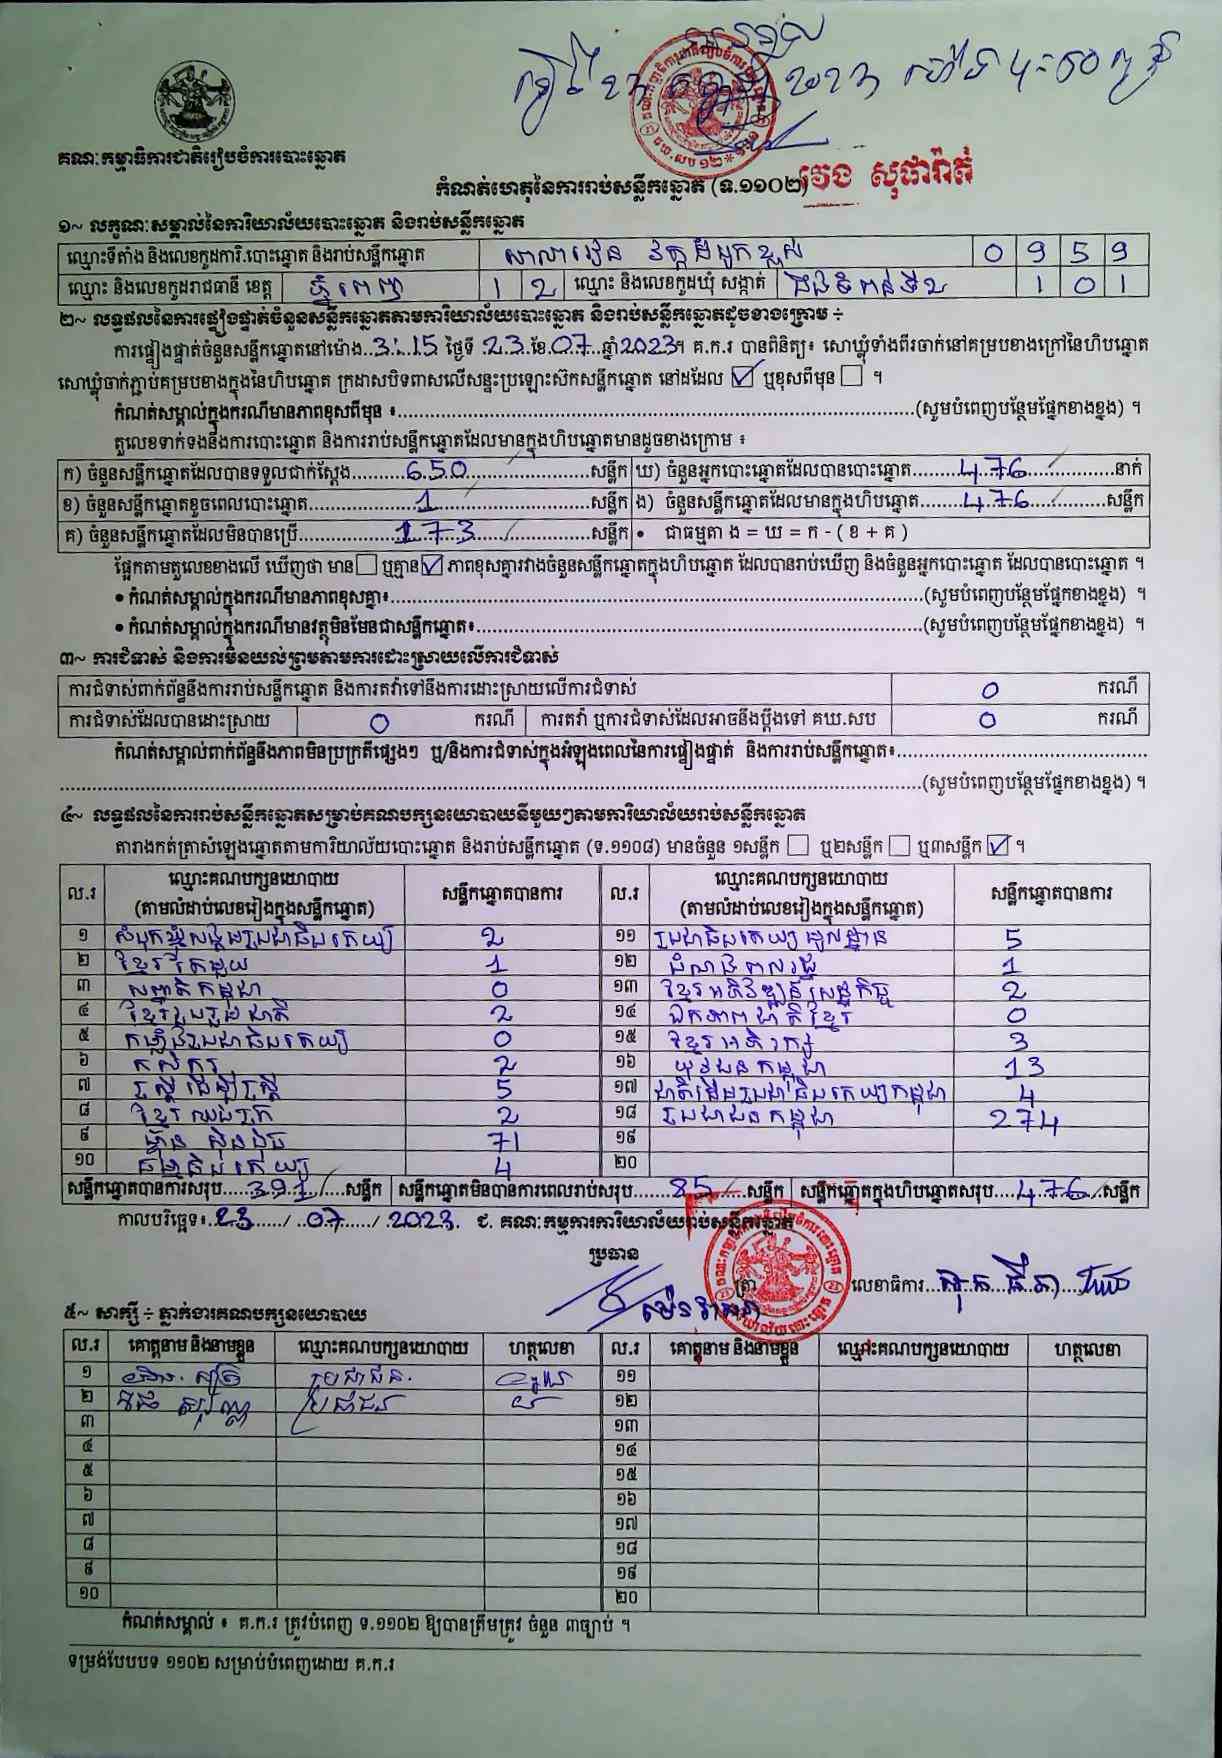 គណៈកម្មាធិការជាតិរៀបចំការបោះឆ្នោត
កំណត់ហេតុនៃការរាប់សន្លឹកឆ្នោត (ទ.១១០២)
វេង សុផារ៉ាត់
១~ លក្ខណៈសម្គាល់នៃការិយាល័យបោះឆ្នោត និងរាប់សន្លឹកឆ្នោត
ឈ្មោះទីតាំង និងលេខកូដការិ.បោះឆ្នោត និងរាប់សន្លឹកឆ្នោត សាលារៀន វត្ត 0 9 5 9
ឈ្មោះ និងលេខកូដរាជធានី ខេត្ត ភ្នំពេញ 1 2 ឈ្មោះ និងលេខកូដឃុំ សង្កាត់ ជើងឯក 1 0 1
២~ លទ្ធផលនៃការផ្ទៀងផ្ទាត់ចំនួនសន្លឹកឆ្នោតតាមការិយាល័យបោះឆ្នោត និងរាប់សន្លឹកឆ្នោតដូចខាងក្រោម ÷
ការផ្ទៀងផ្ទាត់ចំនួនសន្លឹកឆ្នោតនៅម៉ោង..3:15 ថ្ងៃទី..23..ខែ..07..ឆ្នាំ2023។ គ.ក.រ បានពិនិត្យ៖ សោឃ្លុំទាំងពីរចាក់នៅគម្របខាងក្រៅនៃហិបឆ្នោត
សោឃ្លុំចាក់ភ្ជាប់គម្របខាងក្នុងនៃហិបឆ្នោត ក្រដាសបិទពាសលើសន្ទះប្រឡោះស៊កសន្លឹកឆ្នោត នៅដដែល ☑ ឬខុសពីមុន ☐ ។
កំណត់សម្គាល់ក្នុងករណីមានភាពខុសពីមុន ៖..........(សូមបំពេញបន្ថែមផ្នែកខាងខ្នង) ។
តួលេខទាក់ទងនឹងការបោះឆ្នោត និងការរាប់សន្លឹកឆ្នោតដែលមានក្នុងហិបឆ្នោតមានដូចខាងក្រោម ៖
ក) ចំនួនសន្លឹកឆ្នោតដែលបានទទួលជាក់ស្តែង....650....សន្លឹក ឃ) ចំនួនអ្នកបោះឆ្នោតដែលបានបោះឆ្នោត....476....នាក់
ខ) ចំនួនសន្លឹកឆ្នោតខូចពេលបោះឆ្នោត....1....សន្លឹក ង) ចំនួនសន្លឹកឆ្នោតដែលមានក្នុងហិបឆ្នោត....476....សន្លឹក
គ) ចំនួនសន្លឹកឆ្នោតដែលមិនបានប្រើ....173....សន្លឹក • ជាធម្មតា ង = ឃ = ក - ( ខ + គ )
ផ្អែកតាមតួលេខខាងលើ ឃើញថា មាន ☐ ឬគ្មាន ☑ ភាពខុសគ្នារវាងចំនួនសន្លឹកឆ្នោតក្នុងហិបឆ្នោត ដែលបានរាប់ឃើញ និងចំនួនអ្នកបោះឆ្នោត ដែលបានបោះឆ្នោត ។
• កំណត់សម្គាល់ក្នុងករណីមានភាពខុសគ្នា៖..........(សូមបំពេញបន្ថែមផ្នែកខាងខ្នង) ។
• កំណត់សម្គាល់ក្នុងករណីមានវត្ថុមិនមែនជាសន្លឹកឆ្នោត៖..........(សូមបំពេញបន្ថែមផ្នែកខាងខ្នង) ។
៣~ ការជំទាស់ និងការមិនយល់ព្រមតាមការដោះស្រាយលើការជំទាស់
ការជំទាស់ពាក់ព័ន្ធនឹងការរាប់សន្លឹកឆ្នោត និងការតវ៉ាទៅនឹងការដោះស្រាយលើការជំទាស់ 0 ករណី
ការជំទាស់ដែលបានដោះស្រាយ 0 ករណី ការតវ៉ា ឬការជំទាស់ដែលអាចនឹងប្តឹងទៅ គឃ.សប 0 ករណី
កំណត់សម្គាល់ពាក់ព័ន្ធនឹងភាពមិនប្រក្រតីផ្សេងៗ ឬ/និងការជំទាស់ក្នុងអំឡុងពេលនៃការផ្ទៀងផ្ទាត់ និងការរាប់សន្លឹកឆ្នោត៖..........
..........(សូមបំពេញបន្ថែមផ្នែកខាងខ្នង) ។
៤~ លទ្ធផលនៃការរាប់សន្លឹកឆ្នោតសម្រាប់គណបក្សនយោបាយនីមួយៗតាមការិយាល័យរាប់សន្លឹកឆ្នោត
តារាងកត់ត្រាសំឡេងឆ្នោតតាមការិយាល័យបោះឆ្នោត និងរាប់សន្លឹកឆ្នោត (ទ.១១០៨) មានចំនួន ១សន្លឹក ☐ ឬ២សន្លឹក ☐ ឬ៣សន្លឹក ☑ ។
ល.រ ឈ្មោះគណបក្សនយោបាយ (តាមលំដាប់លេខរៀងក្នុងសន្លឹកឆ្នោត) សន្លឹកឆ្នោតបានការ ល.រ ឈ្មោះគណបក្សនយោបាយ (តាមលំដាប់លេខរៀងក្នុងសន្លឹកឆ្នោត) សន្លឹកឆ្នោតបានការ
១ សំបុកឃ្មុំសង្គមប្រជាធិបតេយ្យ 2 ១១ ប្រជាធិបតេយ្យមូលដ្ឋាន 5
២ ខ្មែរតែមួយ 1 ១២ ជំណាងពលរដ្ឋ 1
៣ សញ្ជាតិកម្ពុជា 0 ១៣ ខ្មែរអភិវឌ្ឍន៍សេដ្ឋកិច្ច 2
៤ ខ្មែររួបរួមជាតិ 2 ១៤ ឯកភាពជាតិខ្មែរ 0
៥ កម្លាំងប្រជាធិបតេយ្យ 0 ១៥ ខ្មែរអភិរក្ស 3
៦ កសិករ 2 ១៦ យុវជនកម្ពុជា 13
៧ ស្ត្រីដើម្បីស្ត្រី 5 ១៧ ជាតិដើមប្រជាធិបតេយ្យកម្ពុជា 4
៨ ខ្មែរឈប់ក្រ 2 ១៨ ប្រជាជនកម្ពុជា 274
៩ ហ្វ៊ុនស៊ិនប៉ិច 71 ១៩
១០ ធម្មាធិបតេយ្យ 4 ២០
សន្លឹកឆ្នោតបានការសរុប....391....សន្លឹក សន្លឹកឆ្នោតមិនបានការពេលរាប់សរុប....85....សន្លឹក សន្លឹកឆ្នោតក្នុងហិបឆ្នោតសរុប....476....សន្លឹក
កាលបរិច្ឆេទ៖..23../..07../..2023. ជ. គណៈកម្មការការិយាល័យរាប់សន្លឹកឆ្នោត
ប្រធាន
ត្រា លេខាធិការ
៥~ សាក្សី ÷ ភ្នាក់ងារគណបក្សនយោបាយ
ល.រ គោត្តនាម និងនាមខ្លួន ឈ្មោះគណបក្សនយោបាយ ហត្ថលេខា ល.រ គោត្តនាម និងនាមខ្លួន ឈ្មោះគណបក្សនយោបាយ ហត្ថលេខា
១ ប្រជាជន ១១
២ ប្រជាជន ១២
៣ ១៣
៤ ១៤
៥ ១៥
៦ ១៦
៧ ១៧
៨ ១៨
៩ ១៩
១០ ២០
កំណត់សម្គាល់ ៖ គ.ក.រ ត្រូវបំពេញ ទ.១១០២ ឱ្យបានត្រឹមត្រូវ ចំនួន ៣ច្បាប់ ។
ទម្រង់បែបបទ ១១០២ សម្រាប់បំពេញដោយ គ.ក.រ